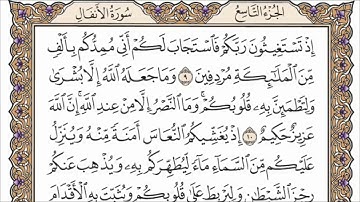 الجزء التاسع سورة الأنفال
إِذْ تَسْتَغِيثُونَ رَبَّكُمْ فَٱسْتَجَابَ لَكُمْ أَنِّى مُمِدُّكُم بِأَلْفٍ
مِّنَ ٱلْمَلَٰٓئِكَةِ مُرْدِفِينَ ٩ وَمَا جَعَلَهُ ٱللَّهُ إِلَّا بُشْرَىٰ
وَلِتَطْمَئِنَّ بِهِۦ قُلُوبُكُمْ ۚ وَمَا ٱلنَّصْرُ إِلَّا مِنْ عِندِ ٱللَّهِ ۚ إِنَّ ٱللَّهَ
عَزِيزٌ حَكِيمٌ ١٠ إِذْ يُغَشِّيكُمُ ٱلنُّعَاسَ أَمَنَةً مِّنْهُ وَيُنَزِّلُ
عَلَيْكُم مِّنَ ٱلسَّمَآءِ مَآءً لِّيُطَهِّرَكُم بِهِۦ وَيُذْهِبَ عَنكُمْ
رِجْزَ ٱلشَّيْطَٰنِ وَلِيَرْبِطَ عَلَىٰ قُلُوبِكُمْ وَيُثَبِّتَ بِهِ ٱلْأَقْدَامَ